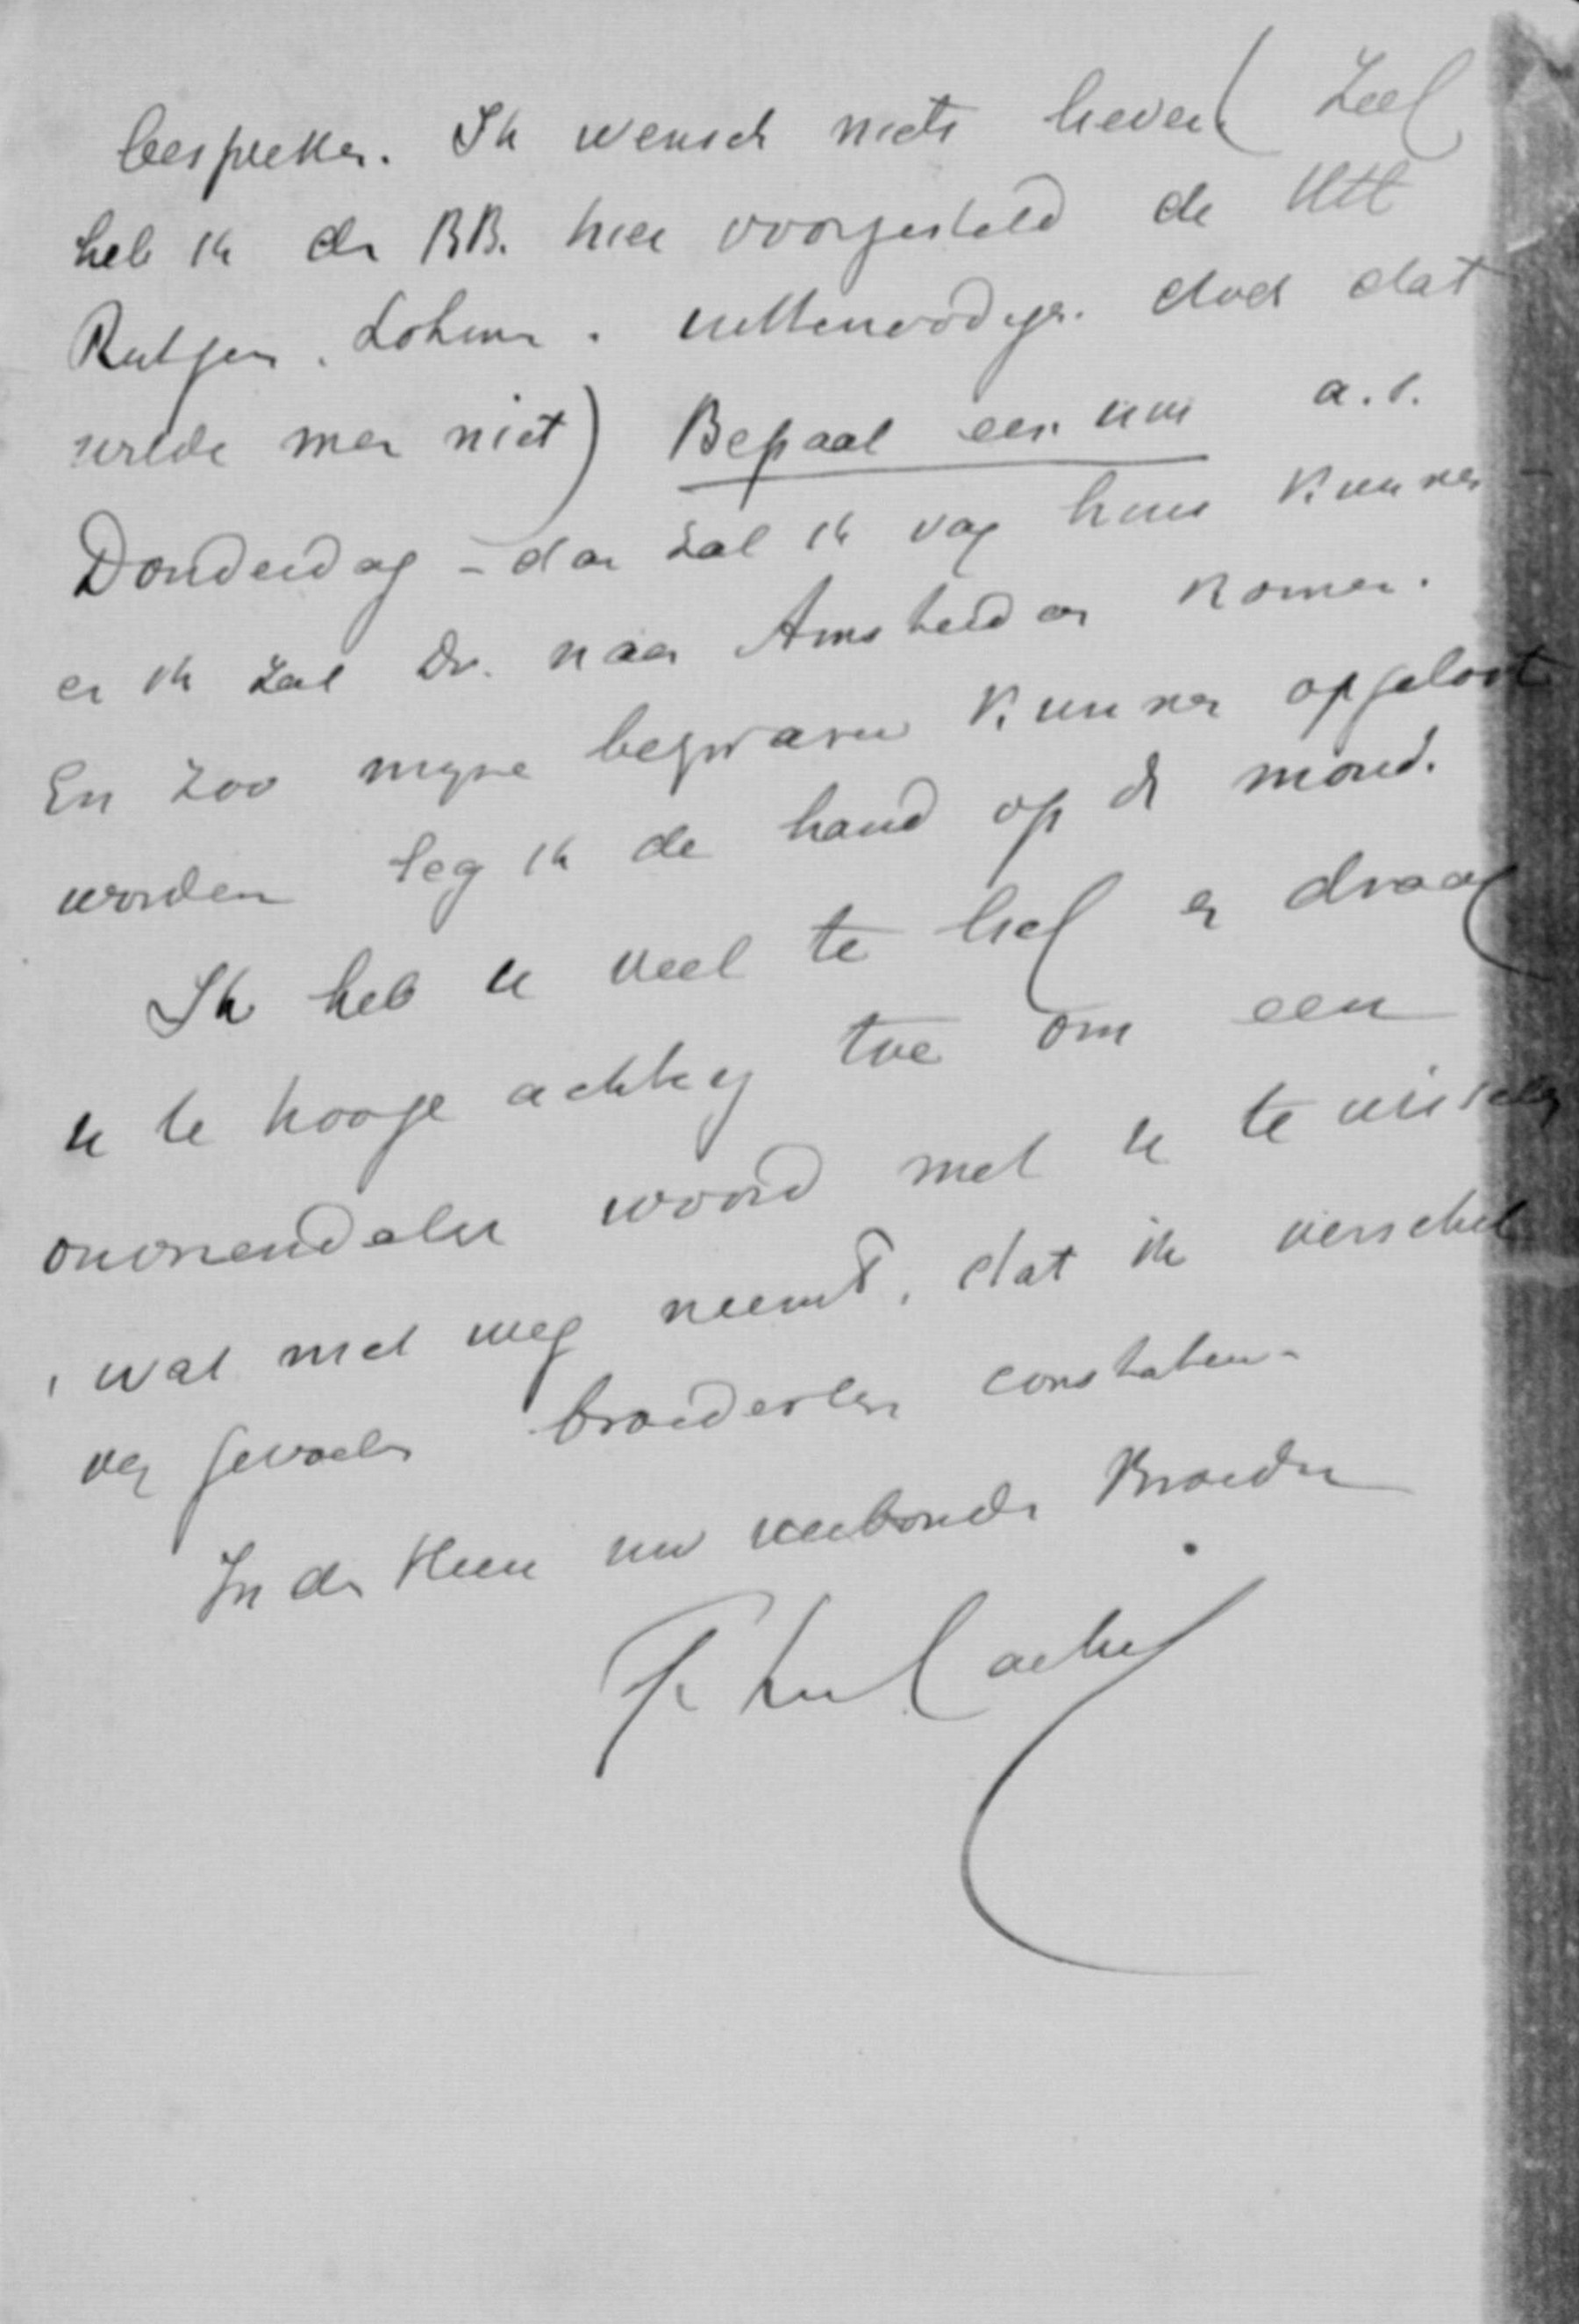 bespreken. Ik wensch niets liever (Zelf
heb ik de BB. hier voorgesteld de HH
Rutgers, Lohman. uittenoodigen. doch dat
wilde men niet) Bepaal een uur a.s.
Donderdag - dan zal ik van huis kunnen -
en ik zal Dv. naar Amsterdam komen.
En zoo mijne bezwaren kunnen opgelost
worden leg ik de hand op de mond.
Ik heb u veel te lief en draag
u te hooge achting toe om een
onvriendelijk woord met u te wisselen
, wat niet weg neemt, dat ik verschil
van gevoelen broederlijk constateer-
In den Heer uw verbonden Broeder